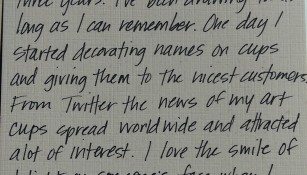 three years. I've been drawing for as
long as I can remember. One day I
started decorating names on cups
and giving them to the nicest customers.
From Twitter the news of my art
cups spread worldwide and attracted
alot of interest. I love the smile of